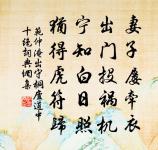 妻子屡牵衣
出门投祸机
宁知白日照
犹得虎符归
范仲淹出守桐庐道中
十绝词典网集